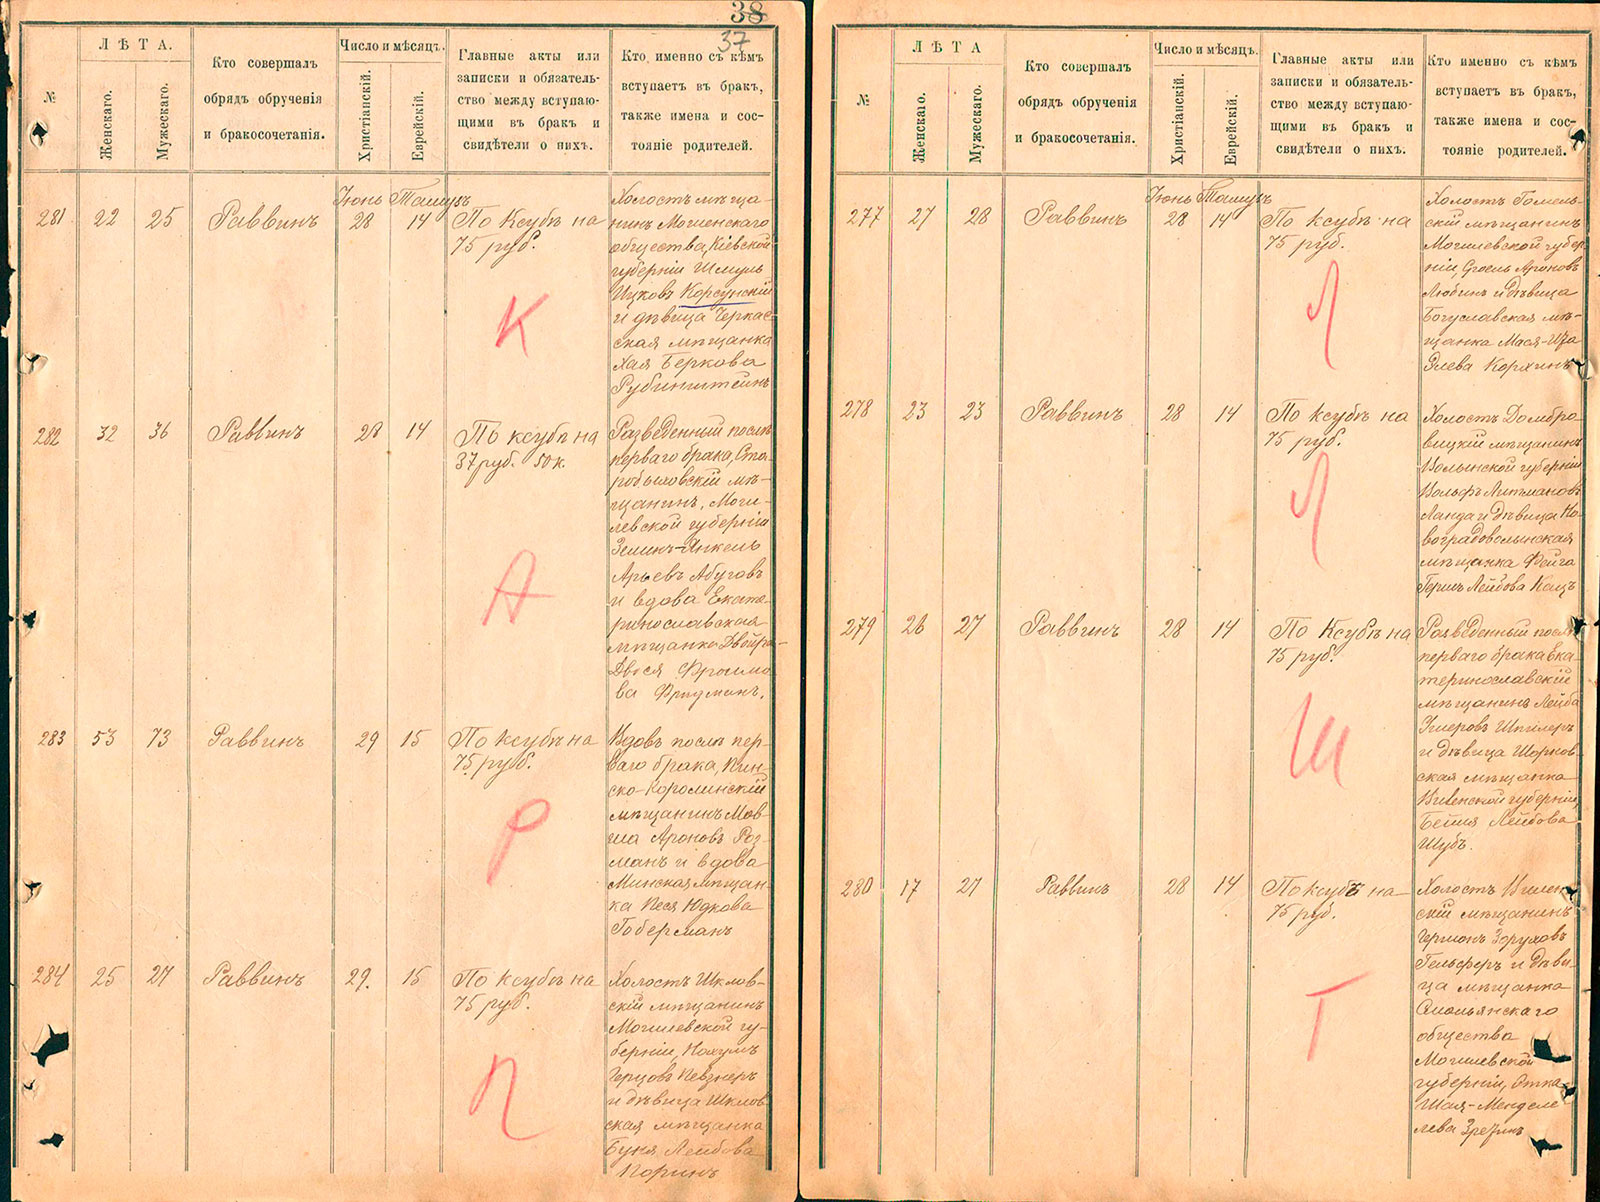 38
37
№
ЛѢТА.
Женскаго.
Мужескаго.
Кто совершалъ
обрядъ обрученія
и бракосочетанія.
Число и мѣсяцъ.
Христіанскій.
Еврейскій.
Главные акты или
записки и обязатель-
ство между вступаю-
щими въ бракъ и
свидѣтели о нихъ.
Кто именно съ кѣмъ
вступаетъ въ бракъ,
также имена и сос-
тояніе родителей.
Іюнь Тамузъ
281 22 25 Раввинъ 28 14 По Ксубѣ на
75 руб.
Холостъ мѣща-
нинъ
общества, Кіевской
губерніи Шмуль
Ицковъ Корсунскій
и дѣвица Черкас-
ская мѣщанка
Хая Беркова
Рубинштейнъ
К
282 32 36 Раввинъ 28 14 По ксубѣ на
37 руб. 50 к.
Разведенный послѣ
перваго брака, Ста-
робыховскій мѣ-
щанинъ, Моги-
левской губерніи
Зелик-Янкель
Арьевъ Абуговъ
и вдова Екате-
ринославская
мѣщанка Двойра-
Двося Фроимо-
ва Фридманъ.
А
283 53 73 Раввинъ 29 15 По Ксубѣ на
75 руб.
Вдовъ послѣ пер-
ваго брака, Пин-
ско-Каролинскій
мѣщанинъ Мов-
ша Ароновъ Роз-
манъ и вдова
Минская мѣщан-
ка Песя Юдкова
Гоберманъ
Р
284 25 27 Раввинъ 29. 15 По Ксубѣ на
75 руб.
Холостъ Шклов-
скій мѣщанинъ
Могилевской гу-
берніи, Нохумъ
Герцовъ Певзнеръ
и дѣвица Шклов-
ская мѣщанка
Буня Лейбова
Норинъ
П
№
ЛѢТА
Женскаго.
Мужескаго.
Кто совершалъ
обрядъ обрученія
и бракосочетанія.
Число и мѣсяцъ.
Христіанскій.
Еврейскій.
Главные акты или
записки и обязатель-
ство между вступаю-
щими въ бракъ и
свидѣтели о нихъ.
Кто именно съ кѣмъ
вступаетъ въ бракъ,
также имена и сос-
тояніе родителей.
Іюнь Тамузъ
277 27 28 Раввинъ 28 14 По Ксубѣ на
75 руб.
Холостъ Гомель-
скій мѣщанинъ
Могилевской губер-
ніи, Сроель Ароновъ
Любинъ и дѣвица
Богуславская мѣ-
щанка Мася-
Элева Коржинъ
Л
278 23 23 Раввинъ 28 14 По ксубѣ на
75 руб.
Холостъ Домбро-
вицкій мѣщанинъ
Волынской губерніи
Вольфъ Литмановъ
Ланда и дѣвица Но-
воградволынская
мѣщанка Фейга
Лейбова Кацъ
Л
279 26 27 Раввинъ 28 14 По Ксубѣ на
75 руб.
Разведенный послѣ
перваго брака Ека-
теринославскій
мѣщанинъ Лейба
Шпилеръ
и дѣвица
ская мѣщанка
губерніи,
Бейля Лейбова
Шубъ.
Ш
280 17 27 Раввинъ 28 14 По ксубѣ на
75 руб.
Холостъ Вилен-
скій мѣщанинъ
Зоруховъ
Гельферъ и дѣви-
ца мѣщанка
Смольянскаго
общества
Могилевской
губерніи,
Менделе-
лева
Г